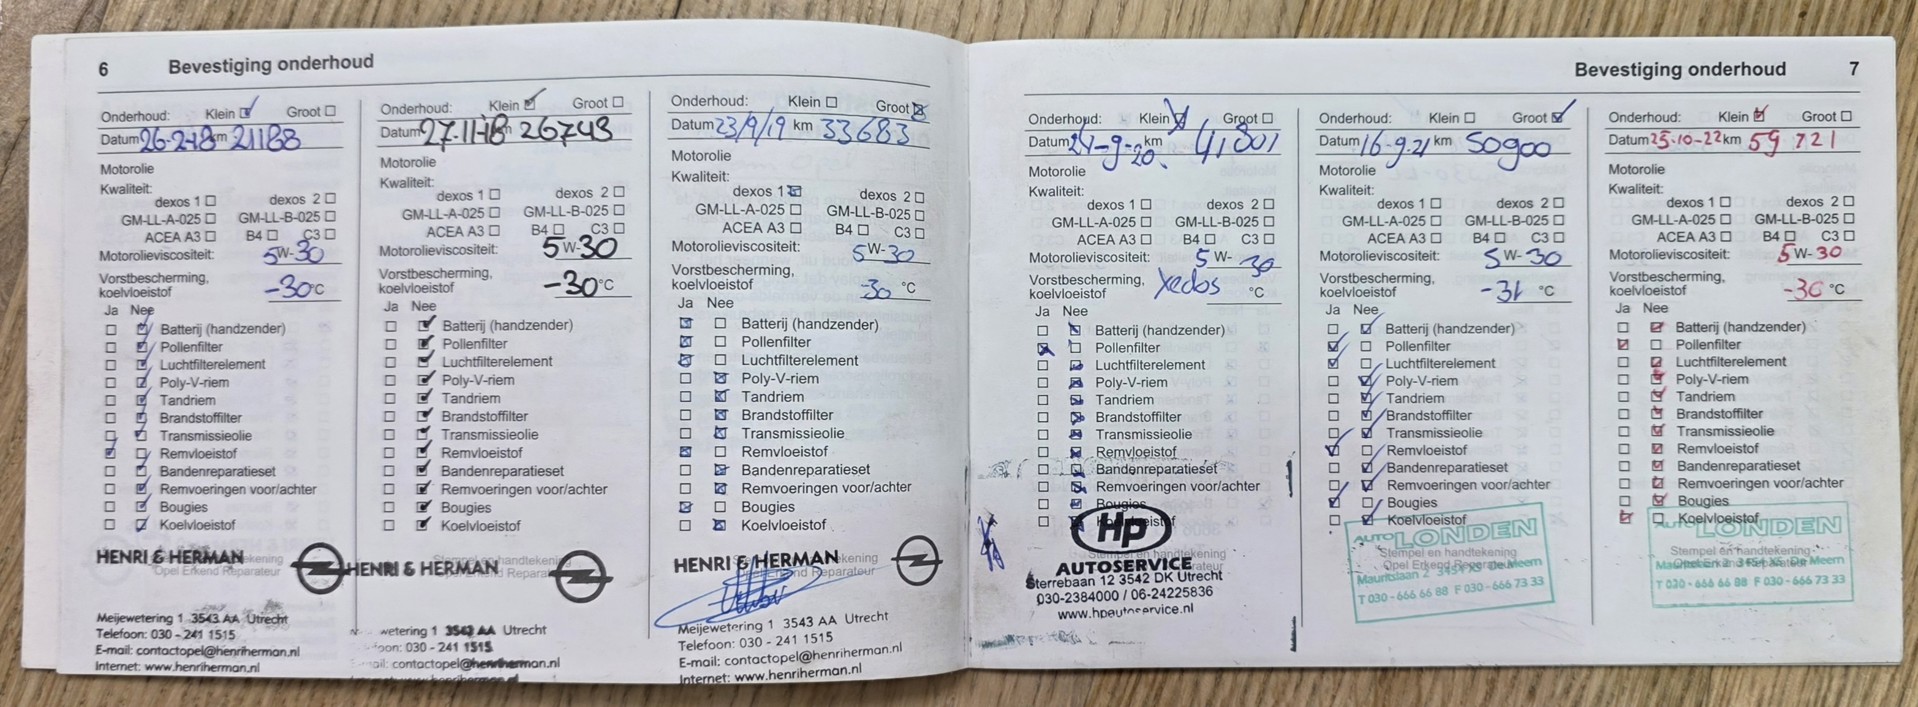 6 Bevestiging onderhoud
Onderhoud: Klein Groot
Datum 26-2-18 km 21188
Motorolie
Kwaliteit:
dexos 1 dexos 2
GM-LL-A-025 GM-LL-B-025
ACEA A3 B4 C3
Motorolieviscositeit: 5W-30
Vorstbescherming,
koelvloeistof -30°C
Ja Nee
Batterij (handzender)
Pollenfilter
Luchtfilterelement
Poly-V-riem
Tandriem
Brandstoffilter
Transmissieolie
Remvloeistof
Bandenreparatieset
Remvoeringen voor/achter
Bougies
Koelvloeistof
HENRI & HERMAN
Opel Erkend Reparateur
Meijewetering 1 3543 AA Utrecht
Telefoon: 030 - 241 1515
E-mail: contactopel@henriherman.nl
Internet: www.henriherman.nl
Onderhoud: Klein Groot
Datum 27-11-18 26743
Motorolie
Kwaliteit:
dexos 1 dexos 2
GM-LL-A-025 GM-LL-B-025
ACEA A3 B4 C3
Motorolieviscositeit: 5W-30
Vorstbescherming,
koelvloeistof -30°C
Ja Nee
Batterij (handzender)
Pollenfilter
Luchtfilterelement
Poly-V-riem
Tandriem
Brandstoffilter
Transmissieolie
Remvloeistof
Bandenreparatieset
Remvoeringen voor/achter
Bougies
Koelvloeistof
Stempel en handtekening
HENRI & HERMAN
wetering 1 3543 AA Utrecht
030 - 241 1515
contactopel@henriherman.nl
Onderhoud: Klein Groot
Datum 23/9/19 km 33683
Motorolie
Kwaliteit:
dexos 1 dexos 2
GM-LL-A-025 GM-LL-B-025
ACEA A3 B4 C3
Motorolieviscositeit: 5W-30
Vorstbescherming,
koelvloeistof -30 °C
Ja Nee
Batterij (handzender)
Pollenfilter
Luchtfilterelement
Poly-V-riem
Tandriem
Brandstoffilter
Transmissieolie
Remvloeistof
Bandenreparatieset
Remvoeringen voor/achter
Bougies
Koelvloeistof
HENRI & HERMAN
Meijewetering 1 3543 AA Utrecht
Telefoon: 030 - 241 1515
E-mail: contactopel@henriherman.nl
Internet: www.henriherman.nl
Bevestiging onderhoud 7
Onderhoud: Klein Groot
Datum 24-9-20 km 41801
Motorolie
Kwaliteit:
dexos 1 dexos 2
GM-LL-A-025 GM-LL-B-025
ACEA A3 B4 C3
Motorolieviscositeit: 5W-30
Vorstbescherming,
koelvloeistof °C
Ja Nee
Batterij (handzender)
Pollenfilter
Luchtfilterelement
Poly-V-riem
Tandriem
Brandstoffilter
Transmissieolie
Remvloeistof
Bandenreparatieset
Remvoeringen voor/achter
Bougies
Koelvloeistof
HP
Stempel en handtekening
AUTOSERVICE
Sterrebaan 12 3542 DK Utrecht
030-2384000 / 06-24225836
www.hpautoservice.nl
Onderhoud: Klein Groot
Datum 16-9-21 km 50900
Motorolie
Kwaliteit:
dexos 1 dexos 2
GM-LL-A-025 GM-LL-B-025
ACEA A3 B4 C3
Motorolieviscositeit: 5W-30
Vorstbescherming,
koelvloeistof -31 °C
Ja Nee
Batterij (handzender)
Pollenfilter
Luchtfilterelement
Poly-V-riem
Tandriem
Brandstoffilter
Transmissieolie
Remvloeistof
Bandenreparatieset
Remvoeringen voor/achter
Bougies
Koelvloeistof
AUTO LONDEN
Stempel en handtekening
Opel Erkend Reparateur
T 030 - 666 66 88 F 030 - 666 73 33
Onderhoud: Klein Groot
Datum 25-10-22 km 59721
Motorolie
Kwaliteit:
dexos 1 dexos 2
GM-LL-A-025 GM-LL-B-025
ACEA A3 B4 C3
Motorolieviscositeit: 5W-30
Vorstbescherming,
koelvloeistof -30 °C
Ja Nee
Batterij (handzender)
Pollenfilter
Luchtfilterelement
Poly-V-riem
Tandriem
Brandstoffilter
Transmissieolie
Remvloeistof
Bandenreparatieset
Remvoeringen voor/achter
Bougies
Koelvloeistof
AUTO LONDEN
Stempel en handtekening
T 030 - 666 66 88 F 030 - 666 73 33